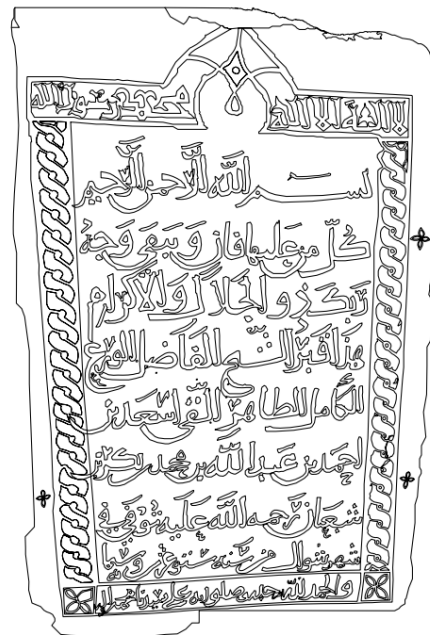 لا اله الا الله محمد رسول الله
بسم الله الرحمن الرحيم
كل من عليها فان ويبقى وجه
ربك ذو الجلال والاكرام
هذا قبر الشيخ الفاضل الورع
الكامل الطاهر التقي اسعد بن
احمد بن عبد الله بن محمد بن بكر بن
شعبان رحمه الله عليه توفي في
شهر شوال من سنة
والحمد لله وصلواته على سيدنا محمد